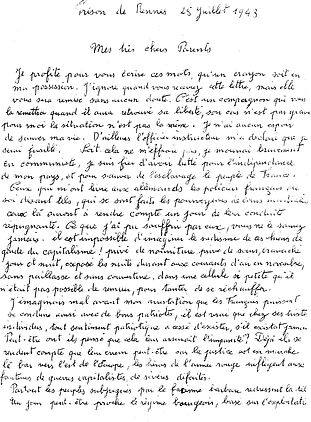 Prison de Rennes 25 Juillet 1943
Mes très chers Parents
Je profite pour vous écrire ces mots, qu'un crayon soit en
ma possession. J'ignore quand vous recevrez cette lettre, mais elle
vous sera remise sans aucun doute. C'est un compagnon qui vous
la remettra quand il aura retrouvé sa liberté, son cas n'est pas grave
pour moi la situation n'est pas la même. Je n'ai aucun espoir
de sauver ma vie. D'ailleurs l'officier instructeur m'a déclaré que je
serai fusillé. cela ne m'effraie pas, je mourrai bravement
en communiste, je suis fier d'avoir lutté pour l'indépendance
de mon pays, et pour sauver de l'esclavage le peuple de France.
Ceux qui m'ont livré aux allemands les policiers français ou
soi disant tels, qui se sont faits les pourvoyeurs de
ceux là auront à rendre compte un jour de leur conduite
répugnante. Ce que j'ai pu souffrir par eux, vous ne le saurez
jamais. il est impossible d'imaginer le sadisme de ces chiens de
garde du capitalisme! privé de nourriture, pas de soins, enchaîné
jour et nuit, exposé la nuit durant aux courants d'air en novembre,
sans paillasse et sans couverture, dans une cellule si petite qu'il
n'était pas possible de remuer, pour tenter de se réchauffer.
J'imaginais mal avant mon arrestation que des Français puissent
se conduire ainsi avec de bons patriotes, il est vrai que chez ces tristes
individus, tout sentiment patriotique a cessé d'exister, s'il existât jamais.
Peut-être ont ils pensé que cela leur assurait l'impunité? Déjà ils se
rendent compte que leur erreur peut-être car la justice est en marche
là bas vers l'est de l'Europe, les héros de l'armée rouge infligent aux
fauteurs de guerres capitalistes, de sévères défaites.
Partout les peuples subjugués par le fascisme barbare redressent la tête
Un jour peut-être proche le régime bourgeois, basé sur l'exploitation